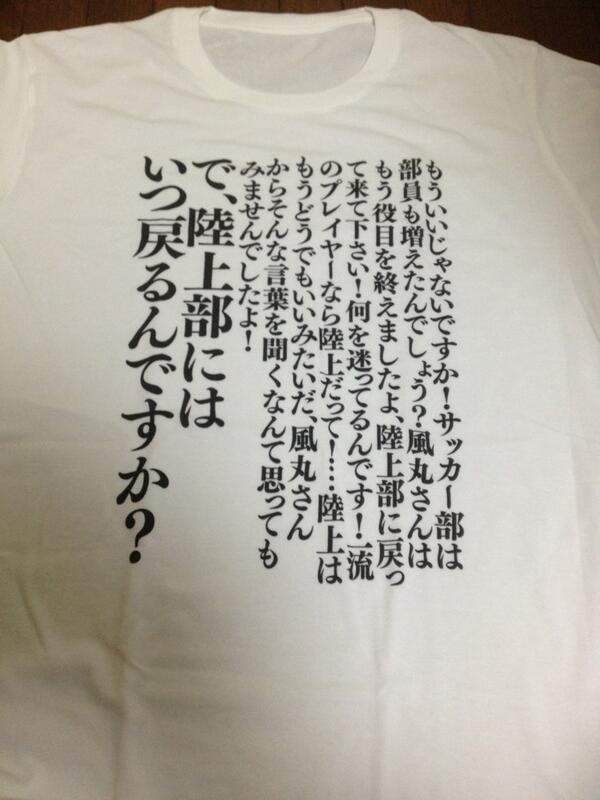 もういいじゃないですか！サッカー部は
部員も増えたんでしょう？風丸さんは
もう役目を終えましたよ、陸上部に戻っ
て来て下さい！何を迷ってるんです！一流
のプレイヤーなら陸上だって！…陸上は
もうどうでもいいみたいだ、風丸さん
からそんな言葉を聞くなんて思っても
みませんでしたよ！
で、陸上部には
いつ戻るんですか？